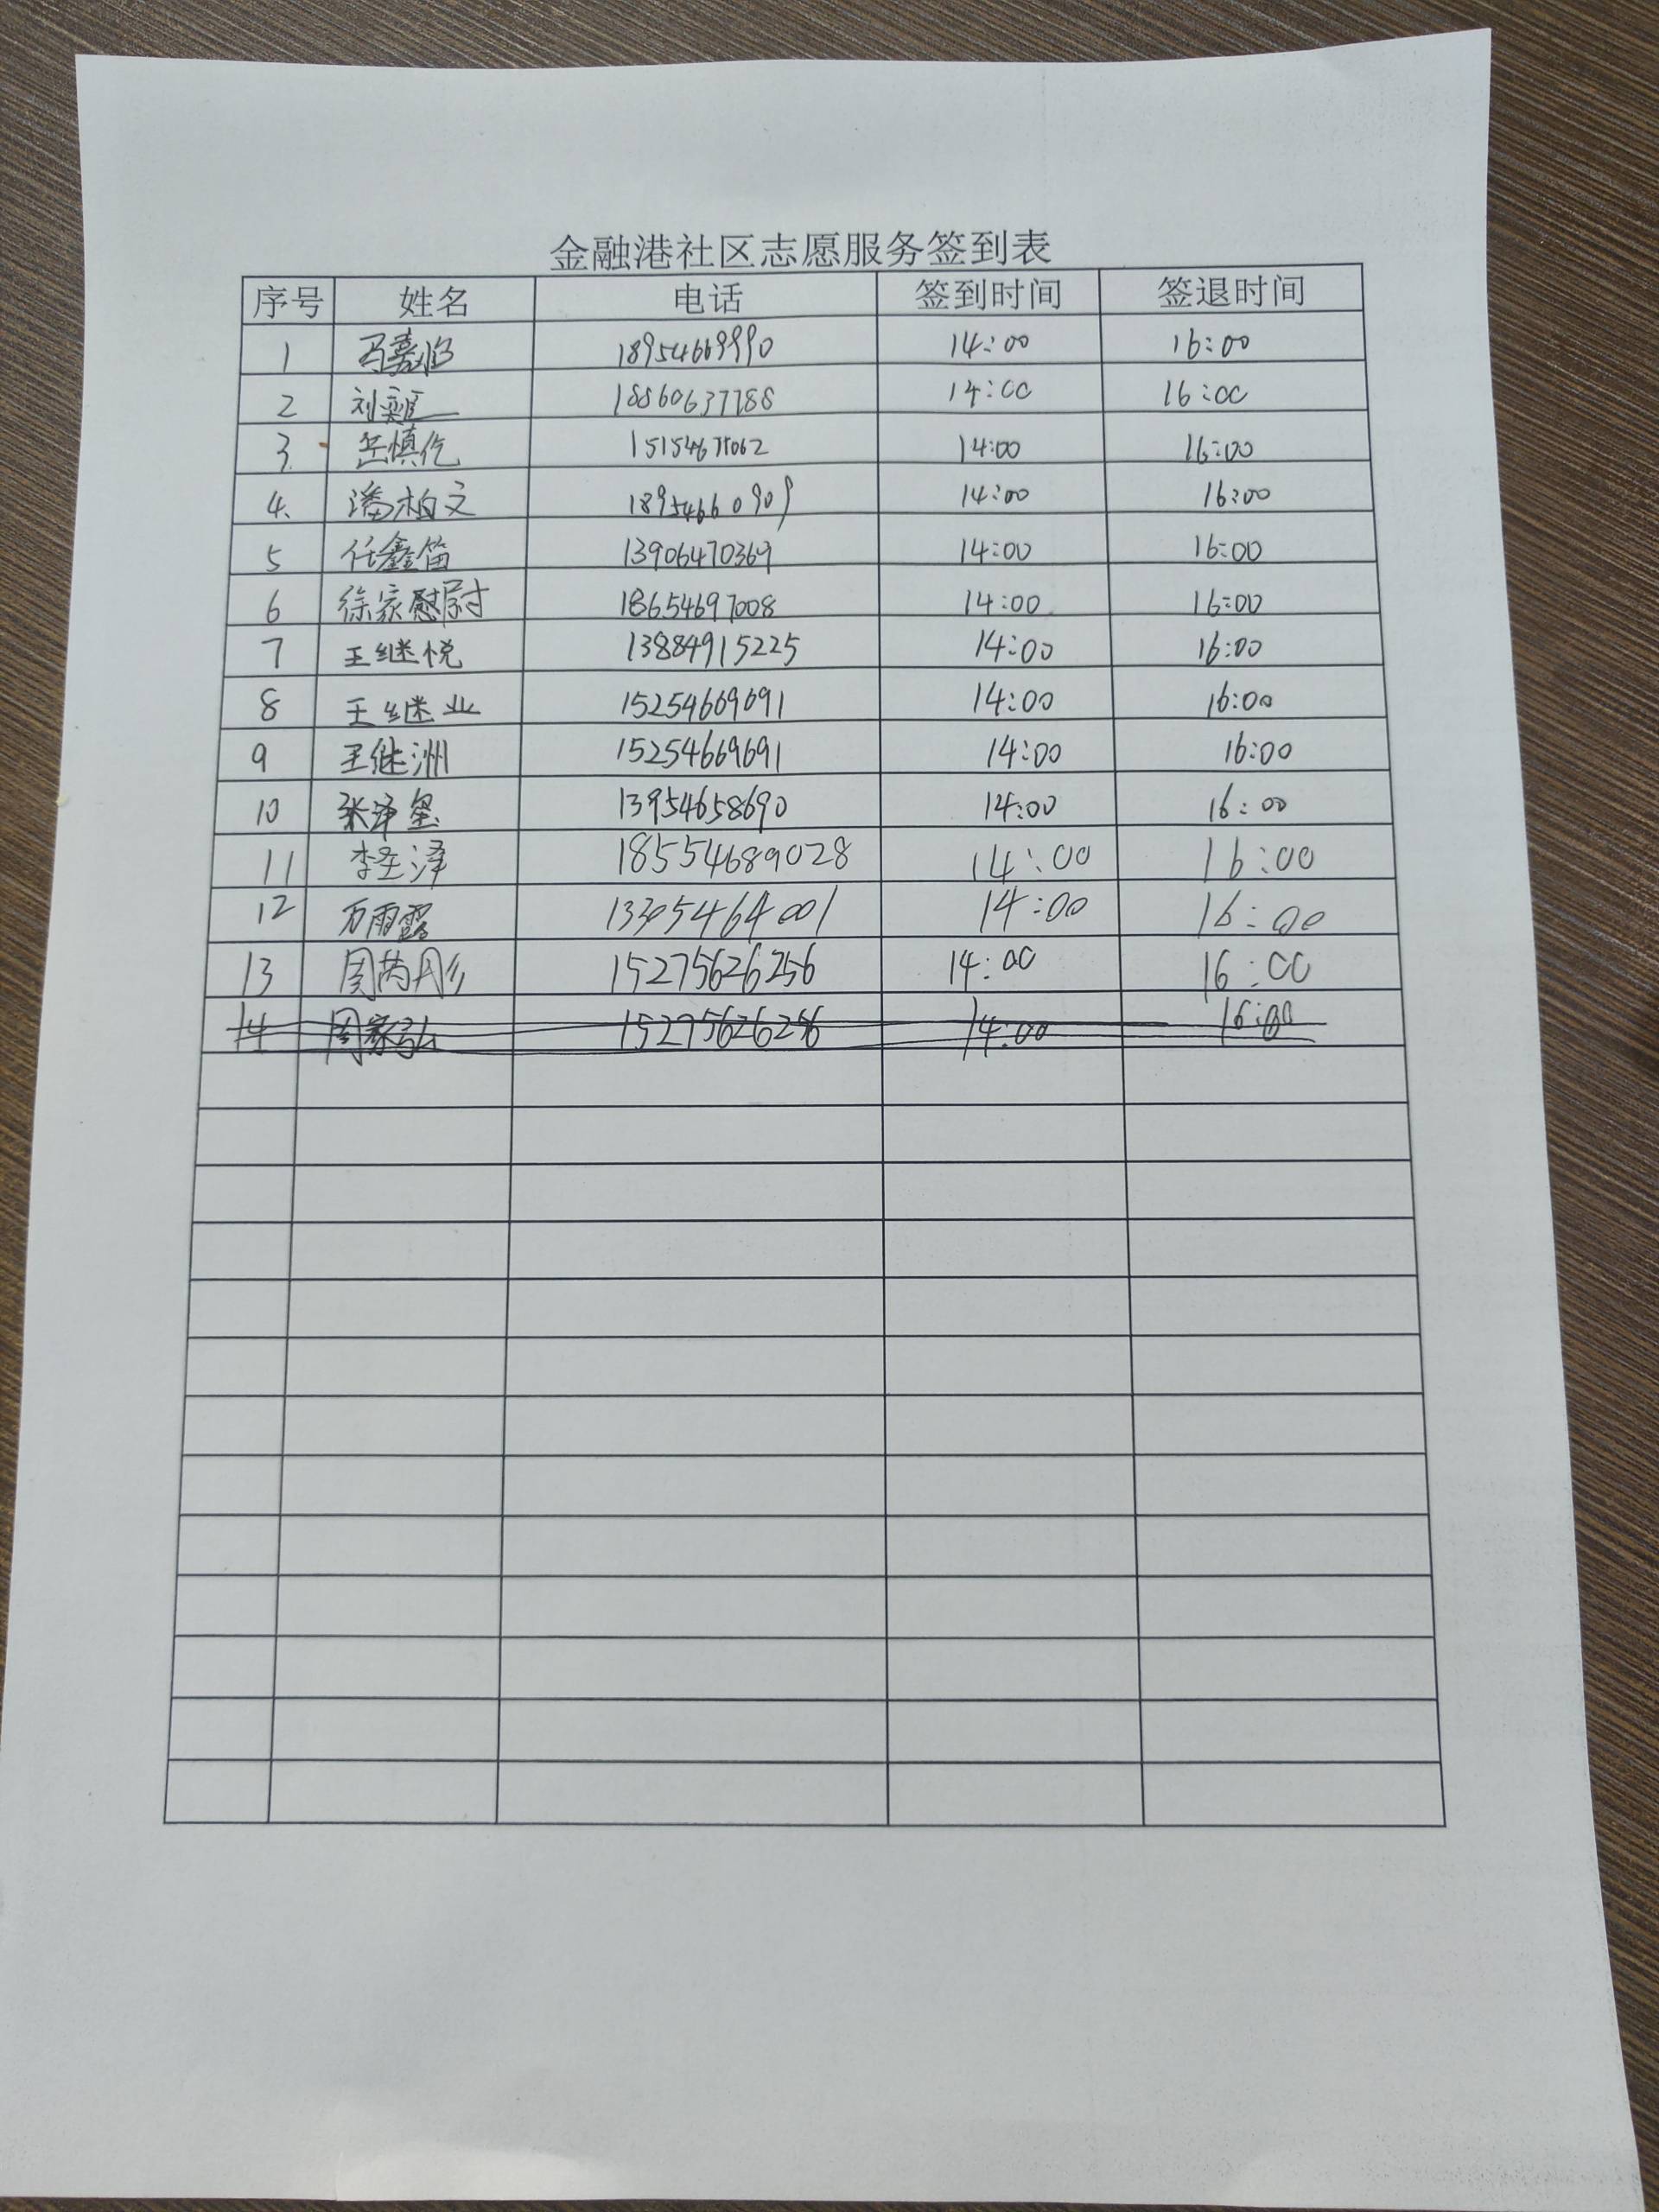 金融港社区志愿服务签到表
序号 姓名 电话 签到时间 签退时间
1 冯嘉 18954669990 14:00 16:00
2 刘 18860637788 14:00 16:00
3. 岳慎仡 15154671062 14:00 16:00
4. 潘柏文 18954660909 14:00 16:00
5 任鑫笛 13906470369 14:00 16:00
6 徐家慰 18654697008 14:00 16:00
7 王继悦 13884915225 14:00 16:00
8 王继业 15254669691 14:00 16:00
9 王继洲 15254669691 14:00 16:00
10 张泽玺 13954658690 14:00 16:00
11 李圣泽 18554689028 14:00 16:00
12 万雨露 13305464001 14:00 16:00
13 周芮彤 15275626256 14:00 16:00
14 周家弘 15275626256 14:00 16:00